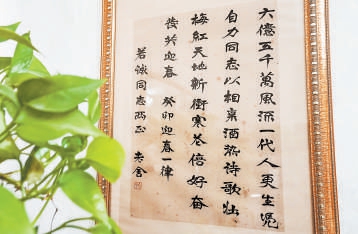 六億五千萬風流一代人更生憑
自力同志以相親酒熱詩歌壯
梅紅天地新衝寒花倍好奮
發共迎春 癸卯迎春一律
同志兩正 老舍